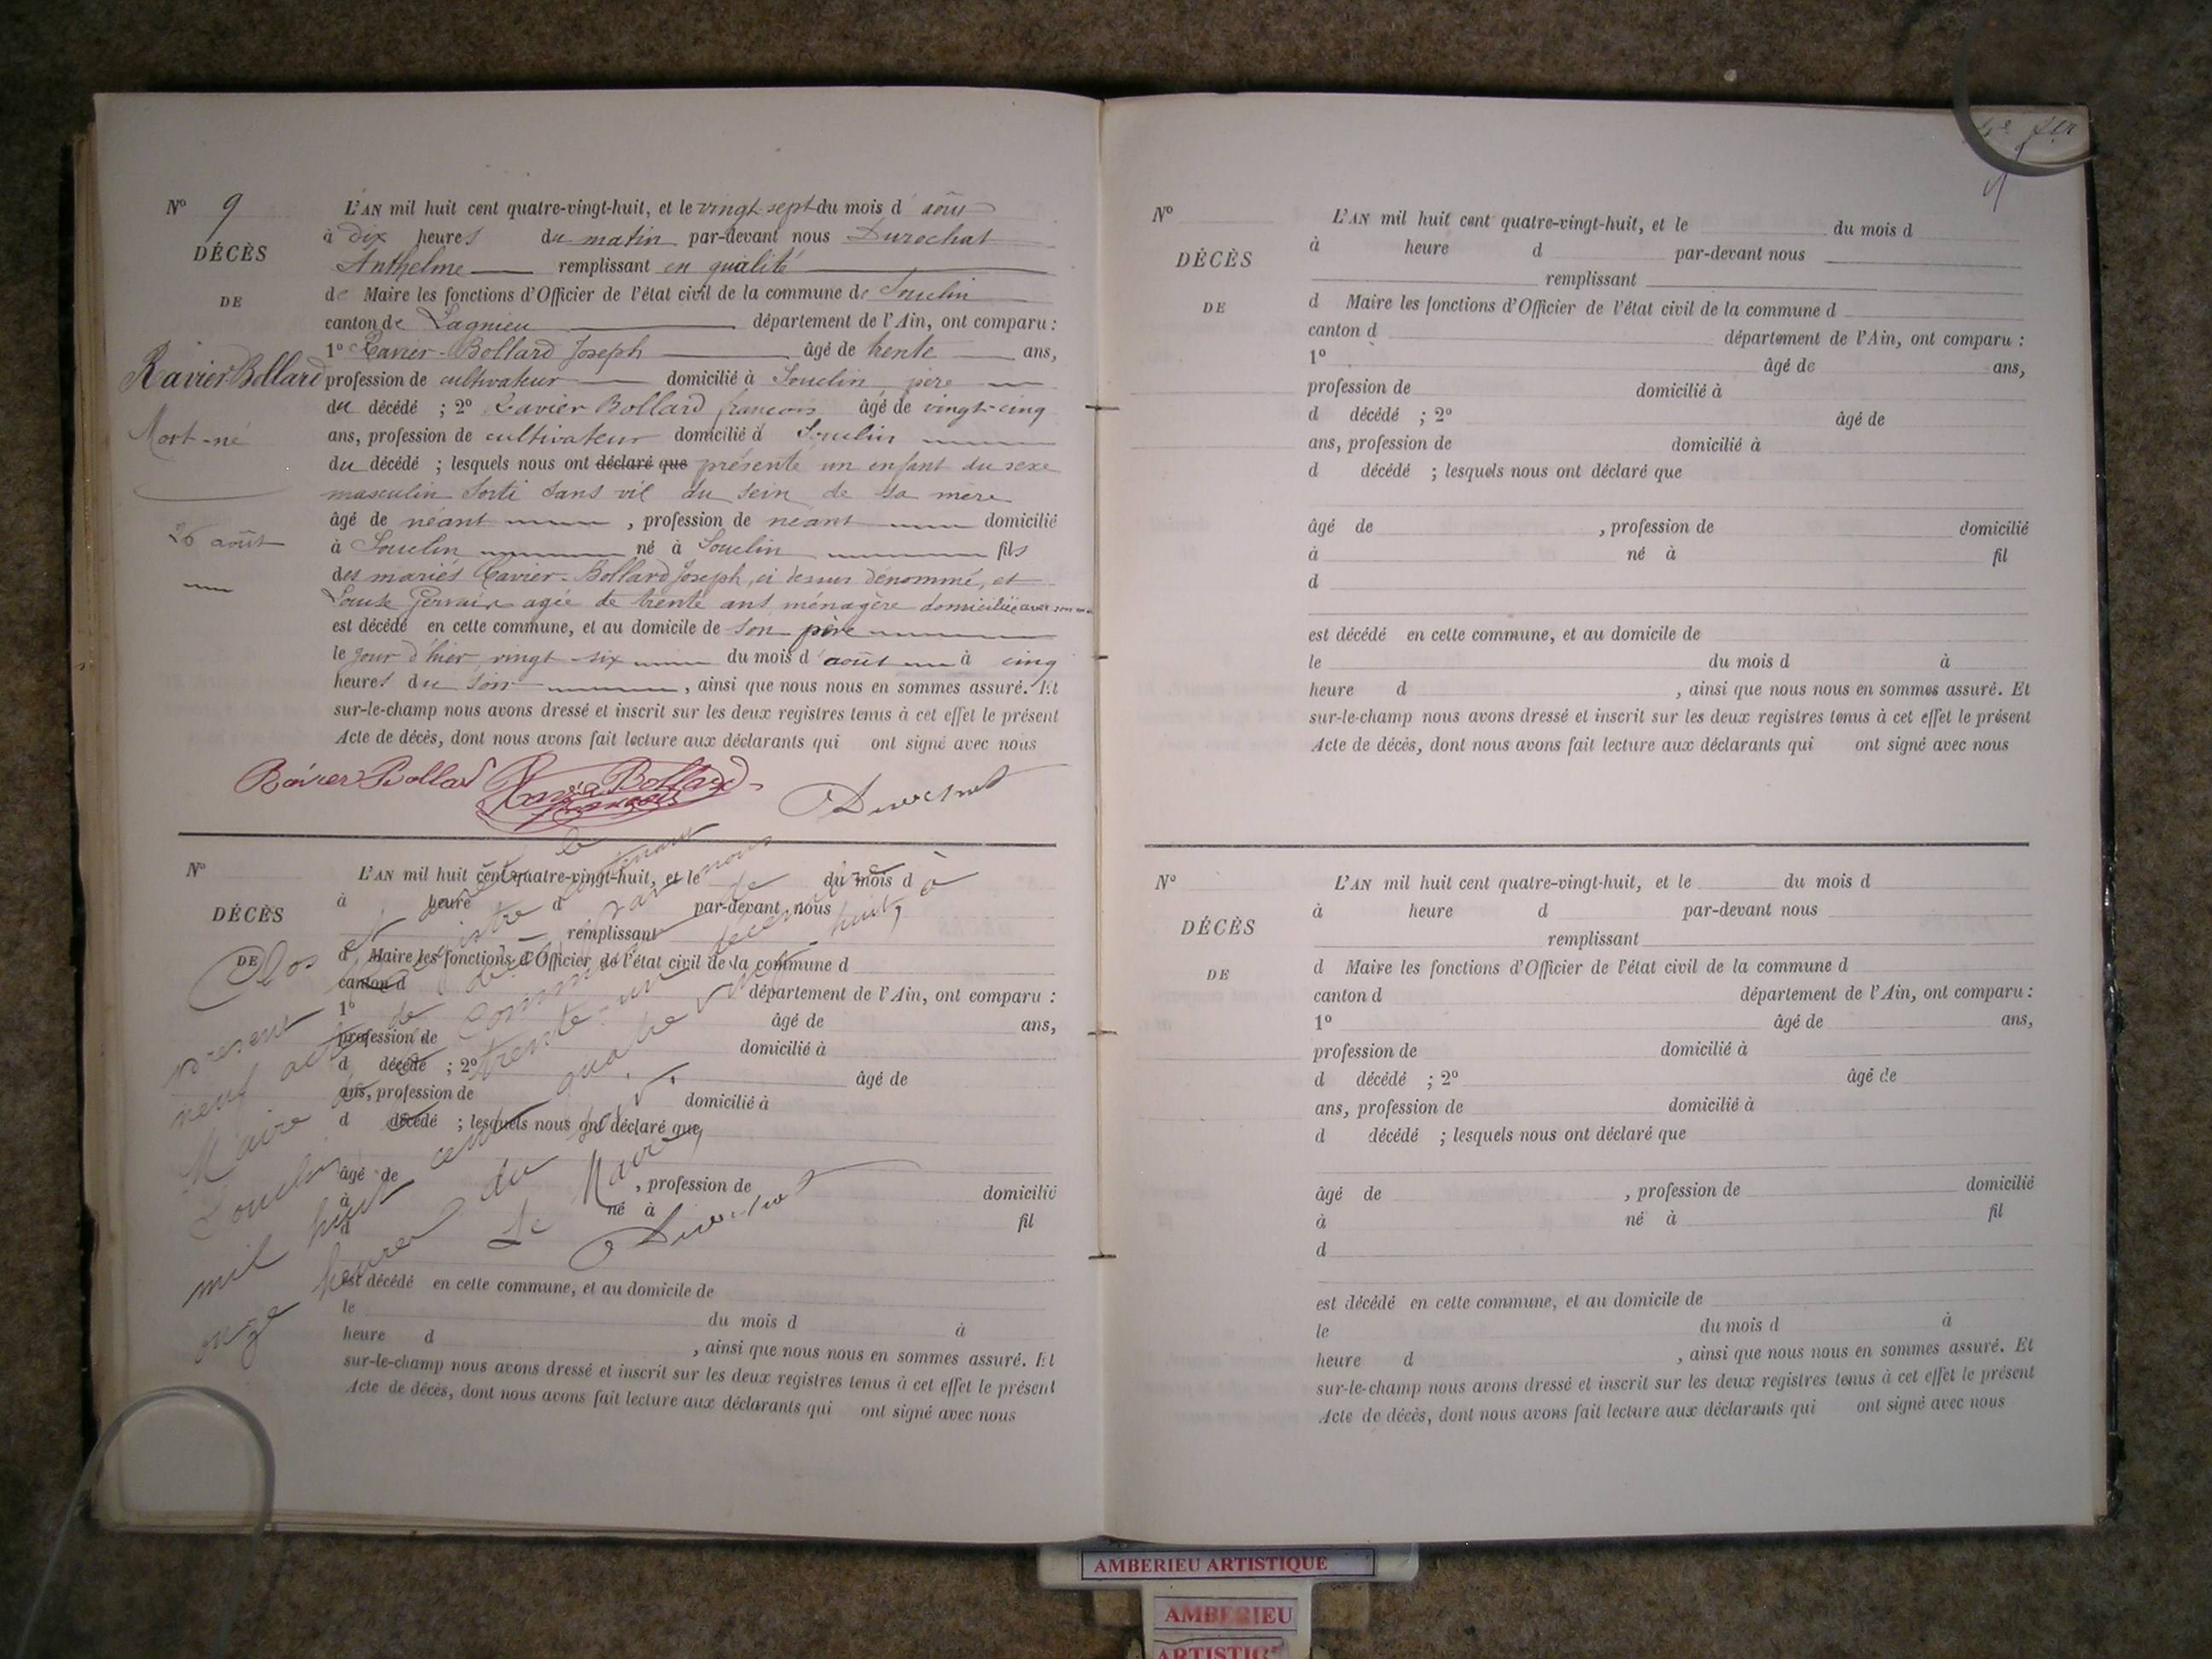 N° 9
DÉCÈS
DE
Ravier Bollard
Mort-né
26 août
L'AN mil huit cent quatre-vingt-huit, et le vingt sept du mois d' août
à dix heures du matin par-devant nous Durochat
Anthelme remplissant en qualité
de Maire les fonctions d'Officier de l'état civil de la commune de Souclin
canton de Lagnieu département de l'Ain, ont comparu :
1° Ravier-Bollard Joseph âgé de trente ans,
profession de cultivateur domicilié à Souclin père
du décédé ; 2° Ravier Bollard françois âgé de vingt-cinq
ans, profession de cultivateur domicilié à Souclin
du décédé ; lesquels nous ont déclaré que présenté un enfant du sexe
masculin sorti sans vie du sein de sa mère
âgé de néant , profession de néant domicilié
à Souclin né à Souclin fils
des mariés Ravier-Bollard Joseph, ci dessus dénommé, et
Louise Gervais agée de trente ans ménagère domiciliée avec son
est décédé en cette commune, et au domicile de son père
le jour d'hier, vingt-six du mois d' août à cinq
heures du soir , ainsi que nous nous en sommes assuré. Et
sur-le-champ nous avons dressé et inscrit sur les deux registres tenus à cet effet le présent
Acte de décès, dont nous avons fait lecture aux déclarants qui ont signé avec nous
Ravier Bollard Ravier Bollard françois Durochat
N°
DÉCÈS
DE
L'AN mil huit cent quatre-vingt-huit, et le du mois d
à heure d par-devant nous
remplissant
d Maire les fonctions d'Officier de l'état civil de la commune d
canton d département de l'Ain, ont comparu :
1° âgé de ans,
profession de domicilié à
d décédé ; 2° âgé de
ans, profession de domicilié à
d décédé ; lesquels nous ont déclaré que
âgé de , profession de domicilié
à né à fil
d
est décédé en cette commune, et au domicile de
le du mois d à
heure d , ainsi que nous nous en sommes assuré. Et
sur-le-champ nous avons dressé et inscrit sur les deux registres tenus à cet effet le présent
Acte de décès, dont nous avons fait lecture aux déclarants qui ont signé avec nous
Clos et arrêté le
présent registre contenant
neuf actes de décès par nous
Maire de la commune de
Souclin le trente-un décembre
mil huit cent quatre vingt-huit, à
onze heures du soir.
Le Maire,
Durochat
N°
DÉCÈS
DE
L'AN mil huit cent quatre-vingt-huit, et le du mois d
à heure d par-devant nous
remplissant
d Maire les fonctions d'Officier de l'état civil de la commune d
canton d département de l'Ain, ont comparu :
1° âgé de ans,
profession de domicilié à
d décédé ; 2° âgé de
ans, profession de domicilié à
d décédé ; lesquels nous ont déclaré que
âgé de , profession de domicilié
à né à fil
d
est décédé en cette commune, et au domicile de
le du mois d à
heure d , ainsi que nous nous en sommes assuré. Et
sur-le-champ nous avons dressé et inscrit sur les deux registres tenus à cet effet le présent
Acte de décès, dont nous avons fait lecture aux déclarants qui ont signé avec nous
N°
DÉCÈS
DE
L'AN mil huit cent quatre-vingt-huit, et le du mois d
à heure d par-devant nous
remplissant
d Maire les fonctions d'Officier de l'état civil de la commune d
canton d département de l'Ain, ont comparu :
1° âgé de ans,
profession de domicilié à
d décédé ; 2° âgé de
ans, profession de domicilié à
d décédé ; lesquels nous ont déclaré que
âgé de , profession de domicilié
à né à fil
d
est décédé en cette commune, et au domicile de
le du mois d à
heure d , ainsi que nous nous en sommes assuré. Et
sur-le-champ nous avons dressé et inscrit sur les deux registres tenus à cet effet le présent
Acte de décès, dont nous avons fait lecture aux déclarants qui ont signé avec nous
AMBERIEU ARTISTIQUE
AMBERIEU